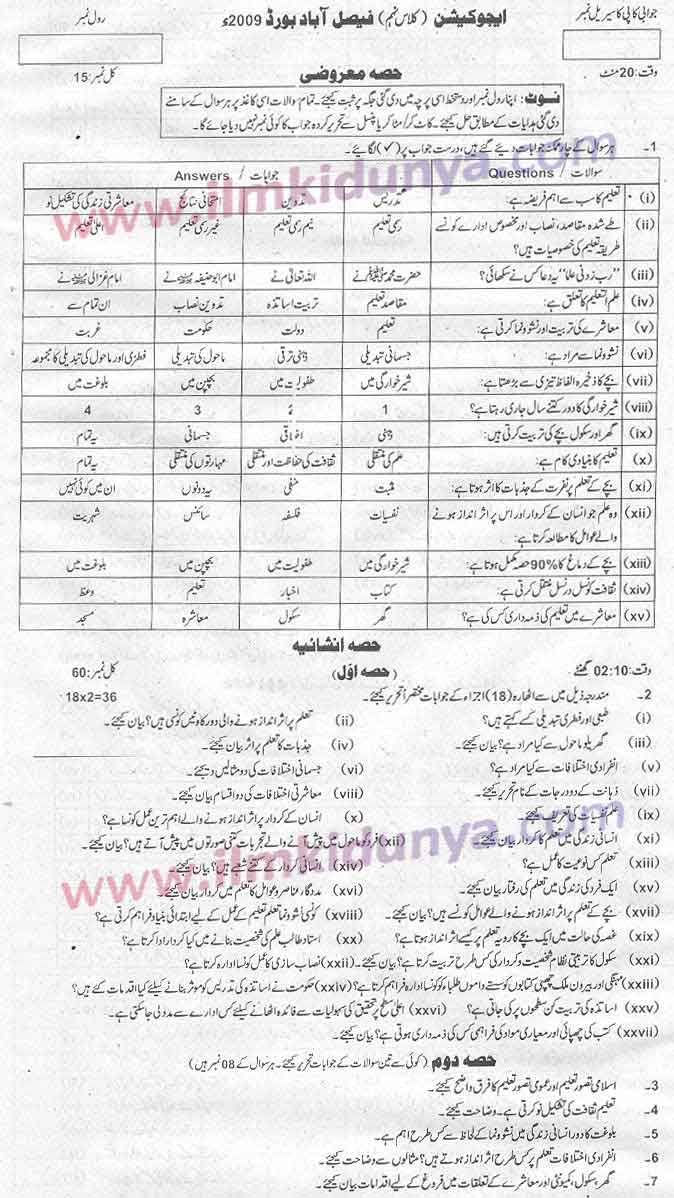 جوابی کاپی کا سیریل نمبر
ایجوکیشن (کلاس نہم) فیصل آباد بورڈ 2009ء
رول نمبر
وقت:20 منٹ
حصہ معروضی
کل نمبر:15
نوٹ: اپنا رول نمبر اور دستخط اسی پرچہ میں دی گئی جگہ پر ثبت کیجئے۔ تمام سوالات اسی کاغذ پر ہر سوال کے سامنے
دی گئی ہدایات کے مطابق حل کیجئے۔ کاٹ کر/مٹا کر یا پنسل سے تحریر کردہ جواب کا کوئی نمبر نہیں دیا جائے گا۔
1۔ ہر سوال کے چار ممکنہ جوابات دیے گئے ہیں، درست جواب پر (✓) لگائیے۔
سوالات / Questions جوابات / Answers
(i) تعلیم کا سب سے اہم فریضہ ہے: تدریس تدوین امتحانی نتائج معاشرتی زندگی کی تشکیل نو
(ii) طے شدہ مقاصد، نصاب اور مخصوص ادارے کونسے رسمی تعلیم نیم رسمی تعلیم غیر رسمی تعلیم اعلیٰ تعلیم
طریقہ تعلیم کی خصوصیات ہیں؟
(iii) "رب زدنی علما" یہ دعا کس نے سکھائی؟ حضرت محمد ﷺ نے اللہ تعالیٰ نے امام ابو حنیفہ نے امام غزالی نے
(iv) علم التعلیم کا تعلق ہے: مقاصد تعلیم تربیت اساتذہ تدوین نصاب ان تمام سے
(v) معاشرے کی تربیت اور نشوونما کرتی ہے: تعلیم دولت حکومت غربت
(vi) نشوونما سے مراد ہے: جسمانی تبدیلی ذہنی ترقی ماحول کی تبدیلی فطری اور ماحول کی تبدیلی کا مجموعہ
(vii) بچے کا ذخیرہ الفاظ تیزی سے بڑھتا ہے: شیر خوارگی میں طفولیت میں بچپن میں بلوغت میں
(viii) شیر خوارگی کا دور کتنے سال جاری رہتا ہے؟ 1 2 3 4
(ix) گھر اور سکول بچے کی تربیت کرتی ہیں: ذہنی اخلاقی جسمانی یہ تمام
(x) تعلیم کا بنیادی کام ہے: علم کی منتقلی ثقافت کی حفاظت اور منتقلی مہارتوں کی منتقلی یہ تمام
(xi) بچے کے تعلم پر نفرت کے جذبات کا اثر ہوتا ہے: مثبت منفی یہ دونوں ان میں کوئی نہیں
(xii) وہ علم جو انسان کے کردار اور اس پر اثر انداز ہونے نفسیات فلسفہ سائنس شہریت
والے عوامل کا مطالعہ کرتا ہے:
(xiii) بچے کے دماغ کا 90% حصہ مکمل ہوتا ہے: شیر خوارگی میں طفولیت میں بچپن میں بلوغت میں
(xiv) ثقافت کو نسل در نسل منتقل کرتی ہے: کتاب اخبار تعلیم وعظ
(xv) معاشرے میں تعلیم کی ذمہ داری کس کی ہے؟ گھر سکول معاشرہ مسجد
حصہ انشائیہ
وقت:02:10 گھنٹے
حصہ اوّل
کل نمبر:60
2۔ مندرجہ ذیل میں سے اٹھارہ (18) اجزاء کے جوابات مختصراً تحریر کیجئے۔ 18x2=36
(i) طبعی اور فطری تبدیلی کسے کہتے ہیں؟ (ii) تعلم پر اثر انداز ہونے والی دو رکاوٹیں کونسی ہیں؟ بیان کیجئے۔
(iii) گھریلو ماحول سے کیا مراد ہے؟ بیان کیجئے۔ (iv) جذبات کا تعلم پر اثر بیان کیجئے۔
(v) انفرادی اختلافات سے کیا مراد ہے؟ (vi) جسمانی اختلافات کی دو مثالیں دیجئے۔
(vii) ذہانت کے دو درجات کے نام تحریر کیجئے۔ (viii) معاشرتی اختلافات کی دو اقسام بیان کیجئے۔
(ix) علم نفسیات کی تعریف کیجئے۔ (x) انسان کے کردار پر اثر انداز ہونے والے اہم ترین عمل کونسا ہے؟
(xi) انسانی زندگی میں تعلم کا کردار بیان کیجئے۔ (xii) فرد کو ماحول میں پیش آنے والے تجربات کتنی صورتوں میں پیش آتے ہیں؟ بیان کیجئے۔
(xiii) تعلم کس نوعیت کا عمل ہے؟ (xiv) انسانی کردار کے کتنے شعبے ہیں؟ بیان کیجئے۔
(xv) ایک فرد کی زندگی میں تعلم کی رفتار بیان کیجئے۔ (xvi) مددگار عناصر و عوامل کا تعلم میں کردار بیان کیجئے۔
(xvii) بچے کے تعلم پر اثر انداز ہونے والے عوامل کونسے ہیں؟ بیان کیجئے۔ (xviii) کونسی نشوونما تعلم تعلیم کے عمل کے لیے ابتدائی بنیاد فراہم کرتی ہے؟
(xix) غصہ کی حالت میں ایک بچے کا رویہ تعلم پر کیسے اثر انداز ہوتا ہے؟ (xx) استاد طالب علم کی شخصیت بنانے میں کیا کردار ادا کرتا ہے؟
(xxi) سکول کا تربیتی نظام شخصیت و کردار کی کس طرح تربیت کرتا ہے؟ بیان کیجئے۔ (xxii) نصاب سازی کا عمل کونسا ادارہ کرتا ہے؟
(xxiii) مہنگی اور بیرون ملک چھپی کتابوں کو سستے داموں طلباء کو کونسا ادارہ فراہم کرتا ہے؟ (xxiv) حکومت نے اساتذہ کی تدریس کو موثر بنانے کیلئے کیا اقدامات کئے ہیں؟
(xxv) اساتذہ کی تربیت کن سطحوں پر کی جاتی ہے؟ (xxvi) اعلیٰ سطح پر تحقیق کی سہولیات سے فائدہ اٹھانے کیلئے کس ادارے سے مدد لی جا سکتی ہے۔
(xxvii) کتب کی چھپائی اور معیاری مواد کی فراہمی کس کی ذمہ داری ہوتی ہے؟ بیان کیجئے۔
حصہ دوم (کوئی سے تین سوالات کے جوابات تحریر کیجئے۔ ہر سوال کے 08 نمبر ہیں)
3۔ اسلامی تصور تعلیم اور عمومی تصور تعلیم کا فرق واضح کیجئے۔
4۔ تعلیم ثقافت کی تشکیل نو کرتی ہے۔ وضاحت کیجئے۔
5۔ بلوغت کا دور انسانی زندگی میں نشوونما کے لحاظ سے کس طرح اہم ہے۔
6۔ انفرادی اختلافات تعلم پر کس طرح اثر انداز ہوتے ہیں؟ مثالوں سے وضاحت کیجئے۔
7۔ گھر، سکول، کمیونٹی اور معاشرے کے تعلقات میں فروغ کے لیے اقدامات بیان کیجئے۔
www.ilmkidunya.com
www.ilmkidunya.com